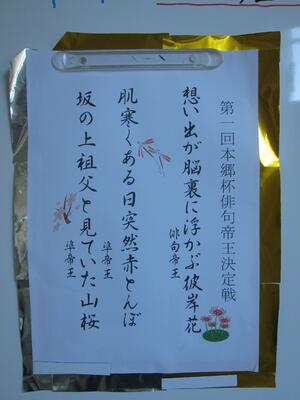 第一回本郷杯俳句帝王決定戦
想い出が脳裏に浮かぶ彼岸花
俳句帝王
肌寒くある日突然赤とんぼ
準帝王
坂の上祖父と見ていた山桜
準帝王